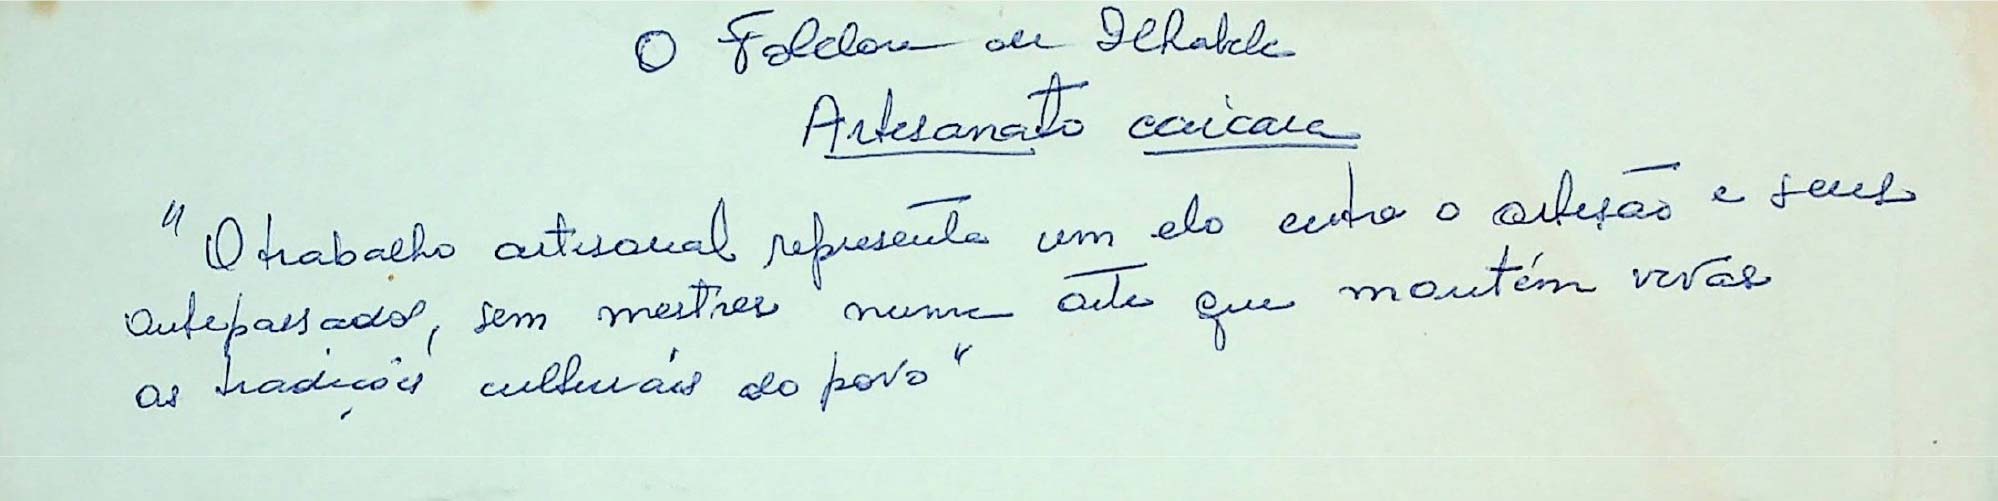 O Folclore de Ilhabela
Artesanato caiçara
"O trabalho artesanal representa um elo entre o artesão e seus
antepassados, sem mestres numa arte que mantém vivas
as tradições culturais do povo"